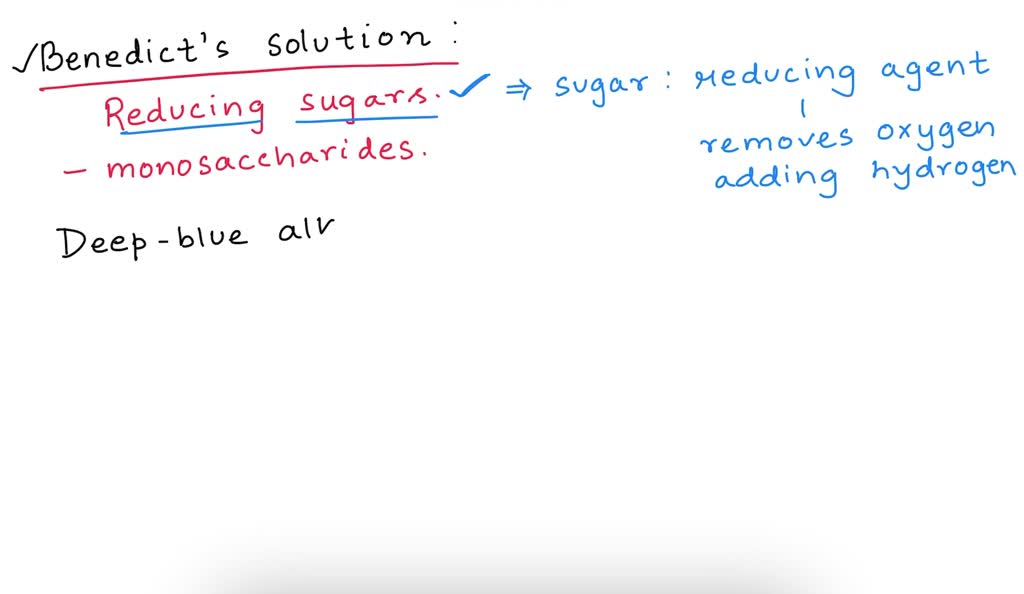 ✓Benedict's solution :
Reducing sugars. ✓ ⇒ sugar : reducing agent
removes oxygen
- monosaccharides.
adding hydrogen
Deep-blue alk